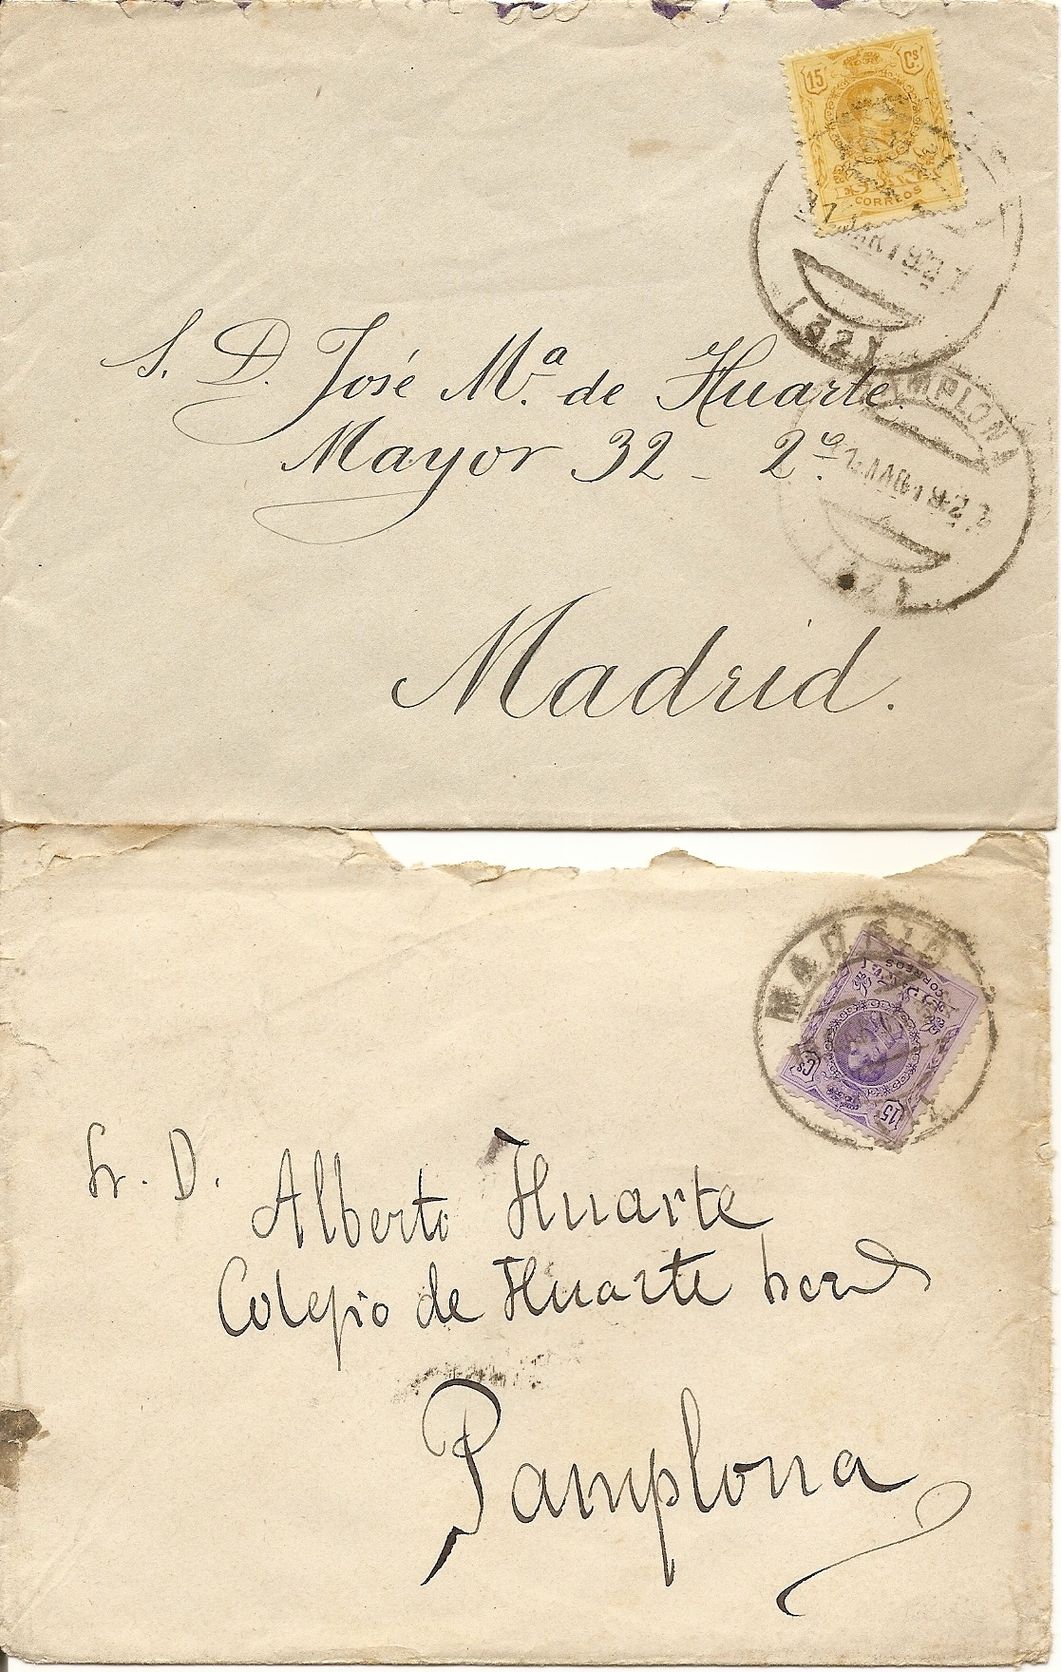 15 Cs
CORREOS
(32)
S. D. José Mª. de Huarte.
Mayor 32 - 2º
PAMPLONA
(32)
Madrid.
MADRID
CORREOS
15 Cs
Sr. D. Alberto Huarte
Colegio de Huarte
Pamplona